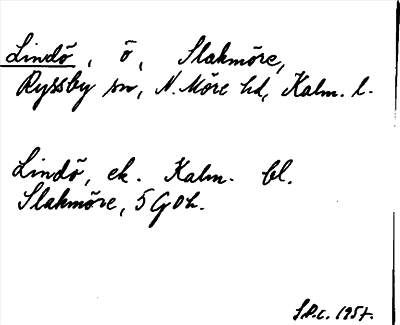 Lindö, ö, Slakmöre,
Ryssby sn, N. Möre hd, Kalm. l.
Lindö, ek. Kalm. bl.
Slakmöre, 5 G Oh.
S.P.c. 1957.